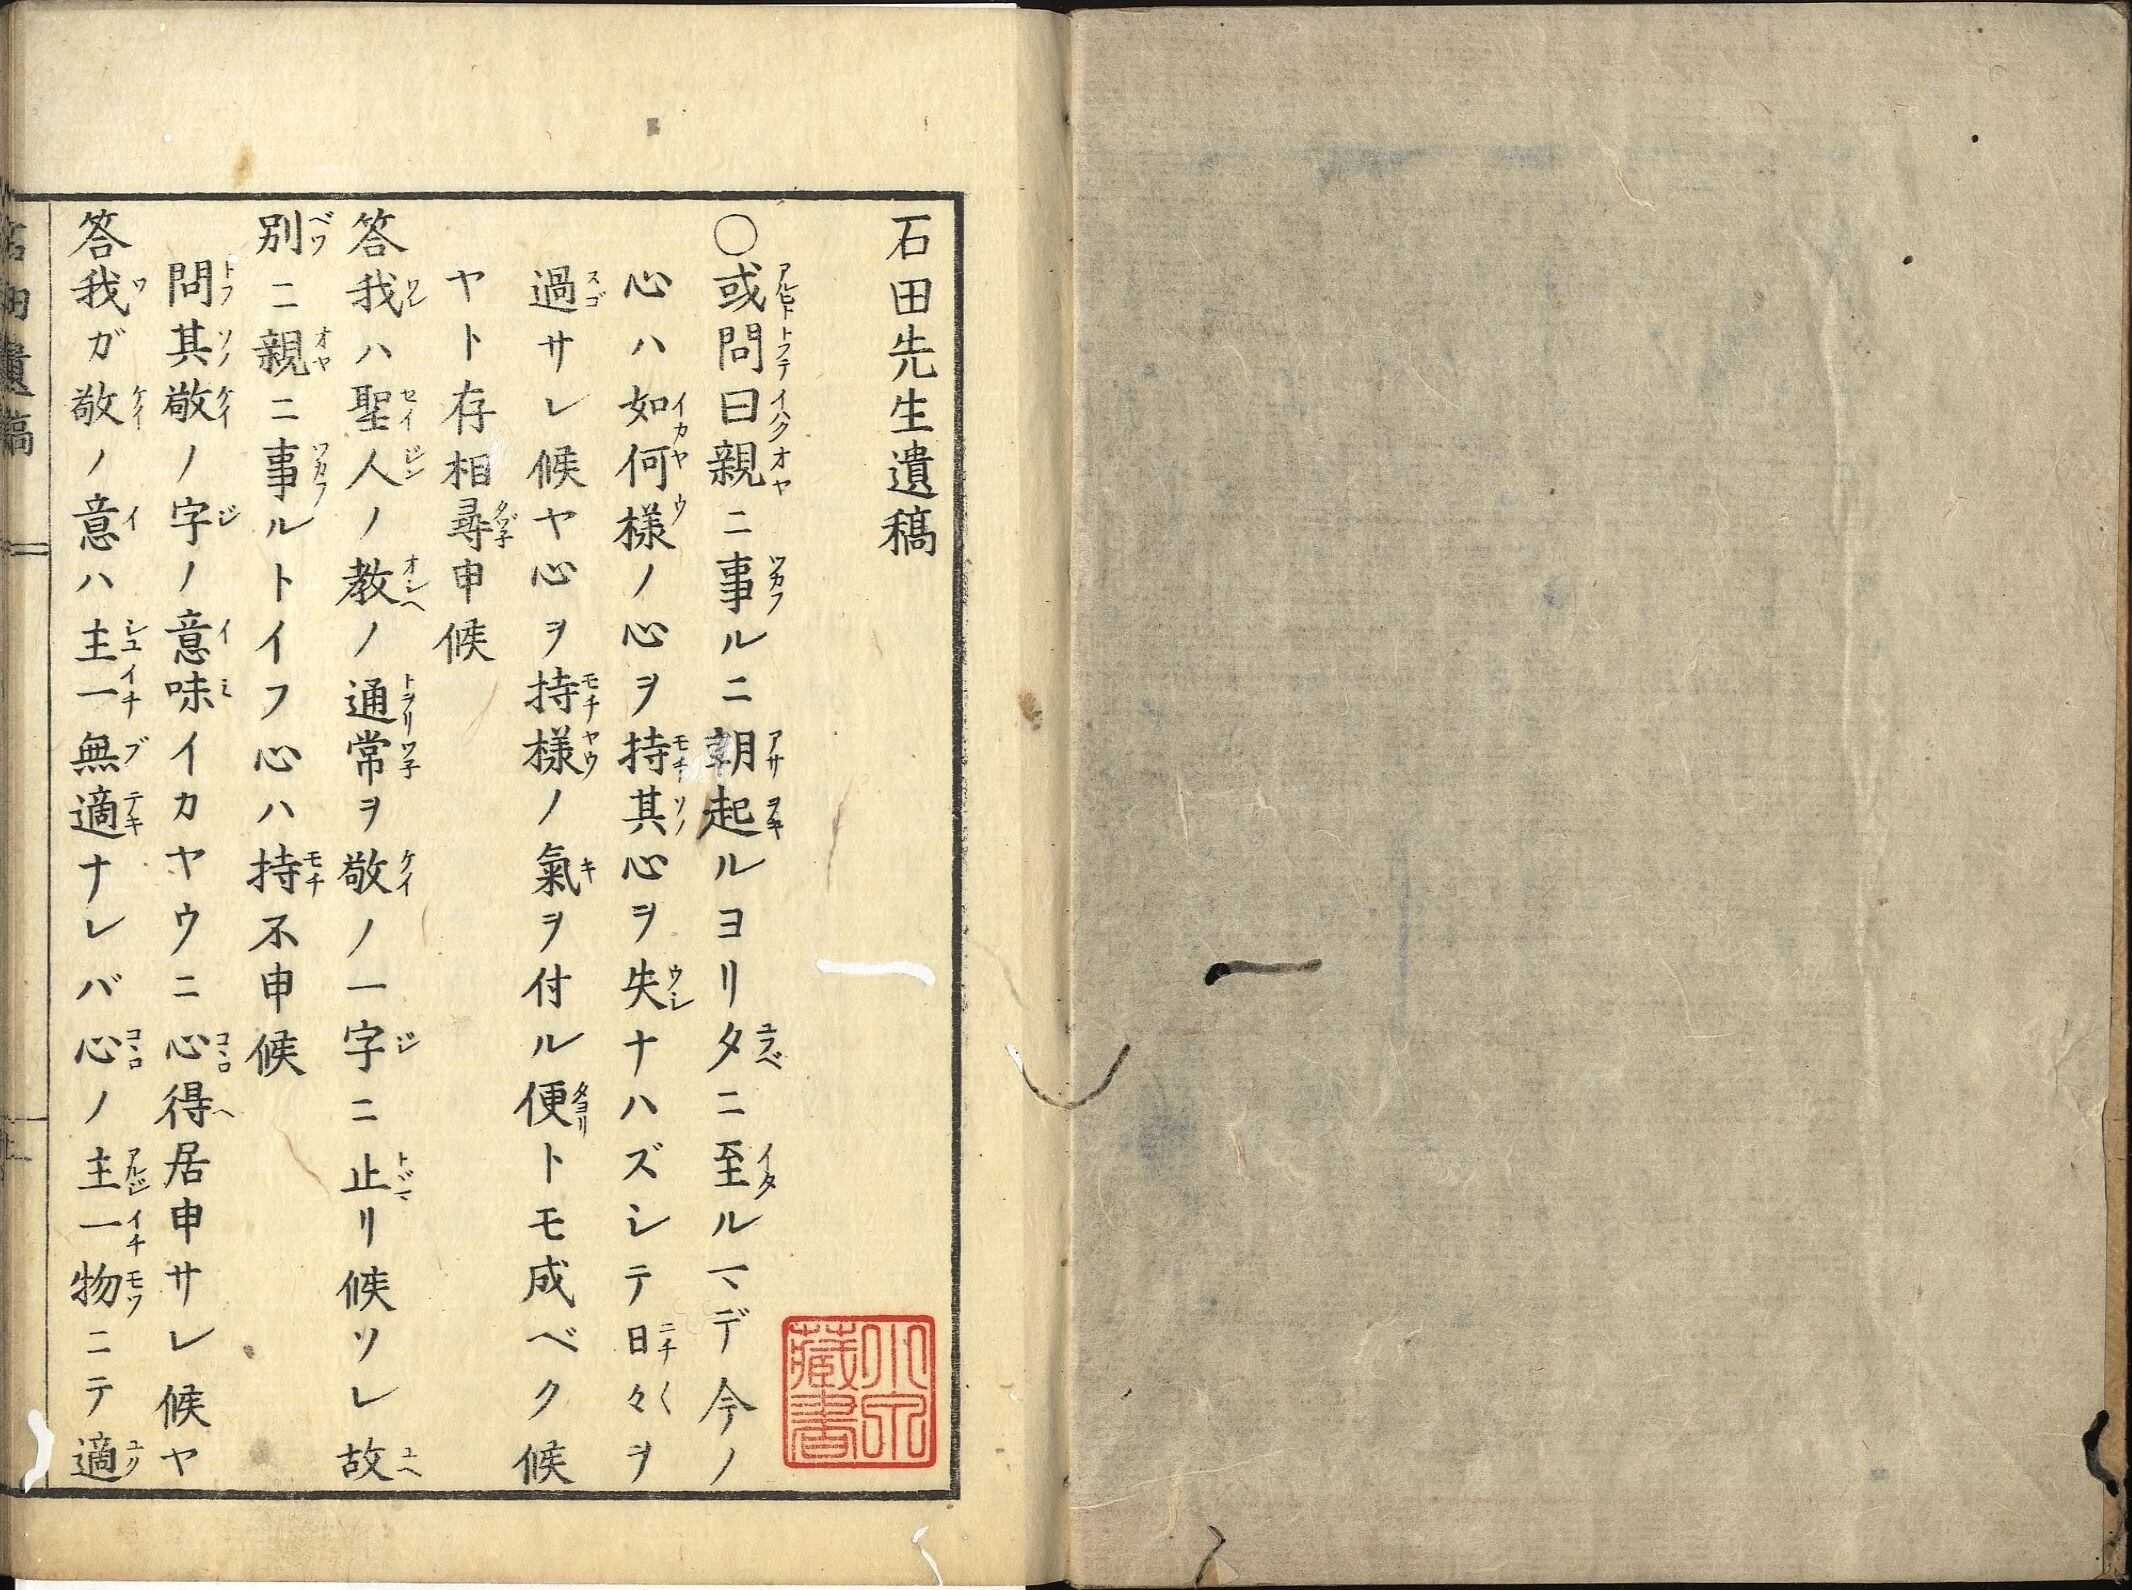 石田先生遺稿
○或問曰親ニ事ルニ朝起ルヨリ夕ニ至ルマデ今ノ
心ハ如何様ノ心ヲ持其心ヲ失ナハズシテ日々ヲ
過サレ候ヤ心ヲ持様ノ氣ヲ付ル便トモ成ベク候
ヤト存相尋申候
答我ハ聖人ノ教ノ通常ヲ敬ノ一字ニ止リ候ソレ故
別ニ親ニ事ルトイフ心ハ持不申候
問其敬ノ字ノ意味イカヤウニ心得居申サレ候ヤ
答我ガ敬ノ意ハ主一無適ナレバ心ノ主一物ニテ適
藏書